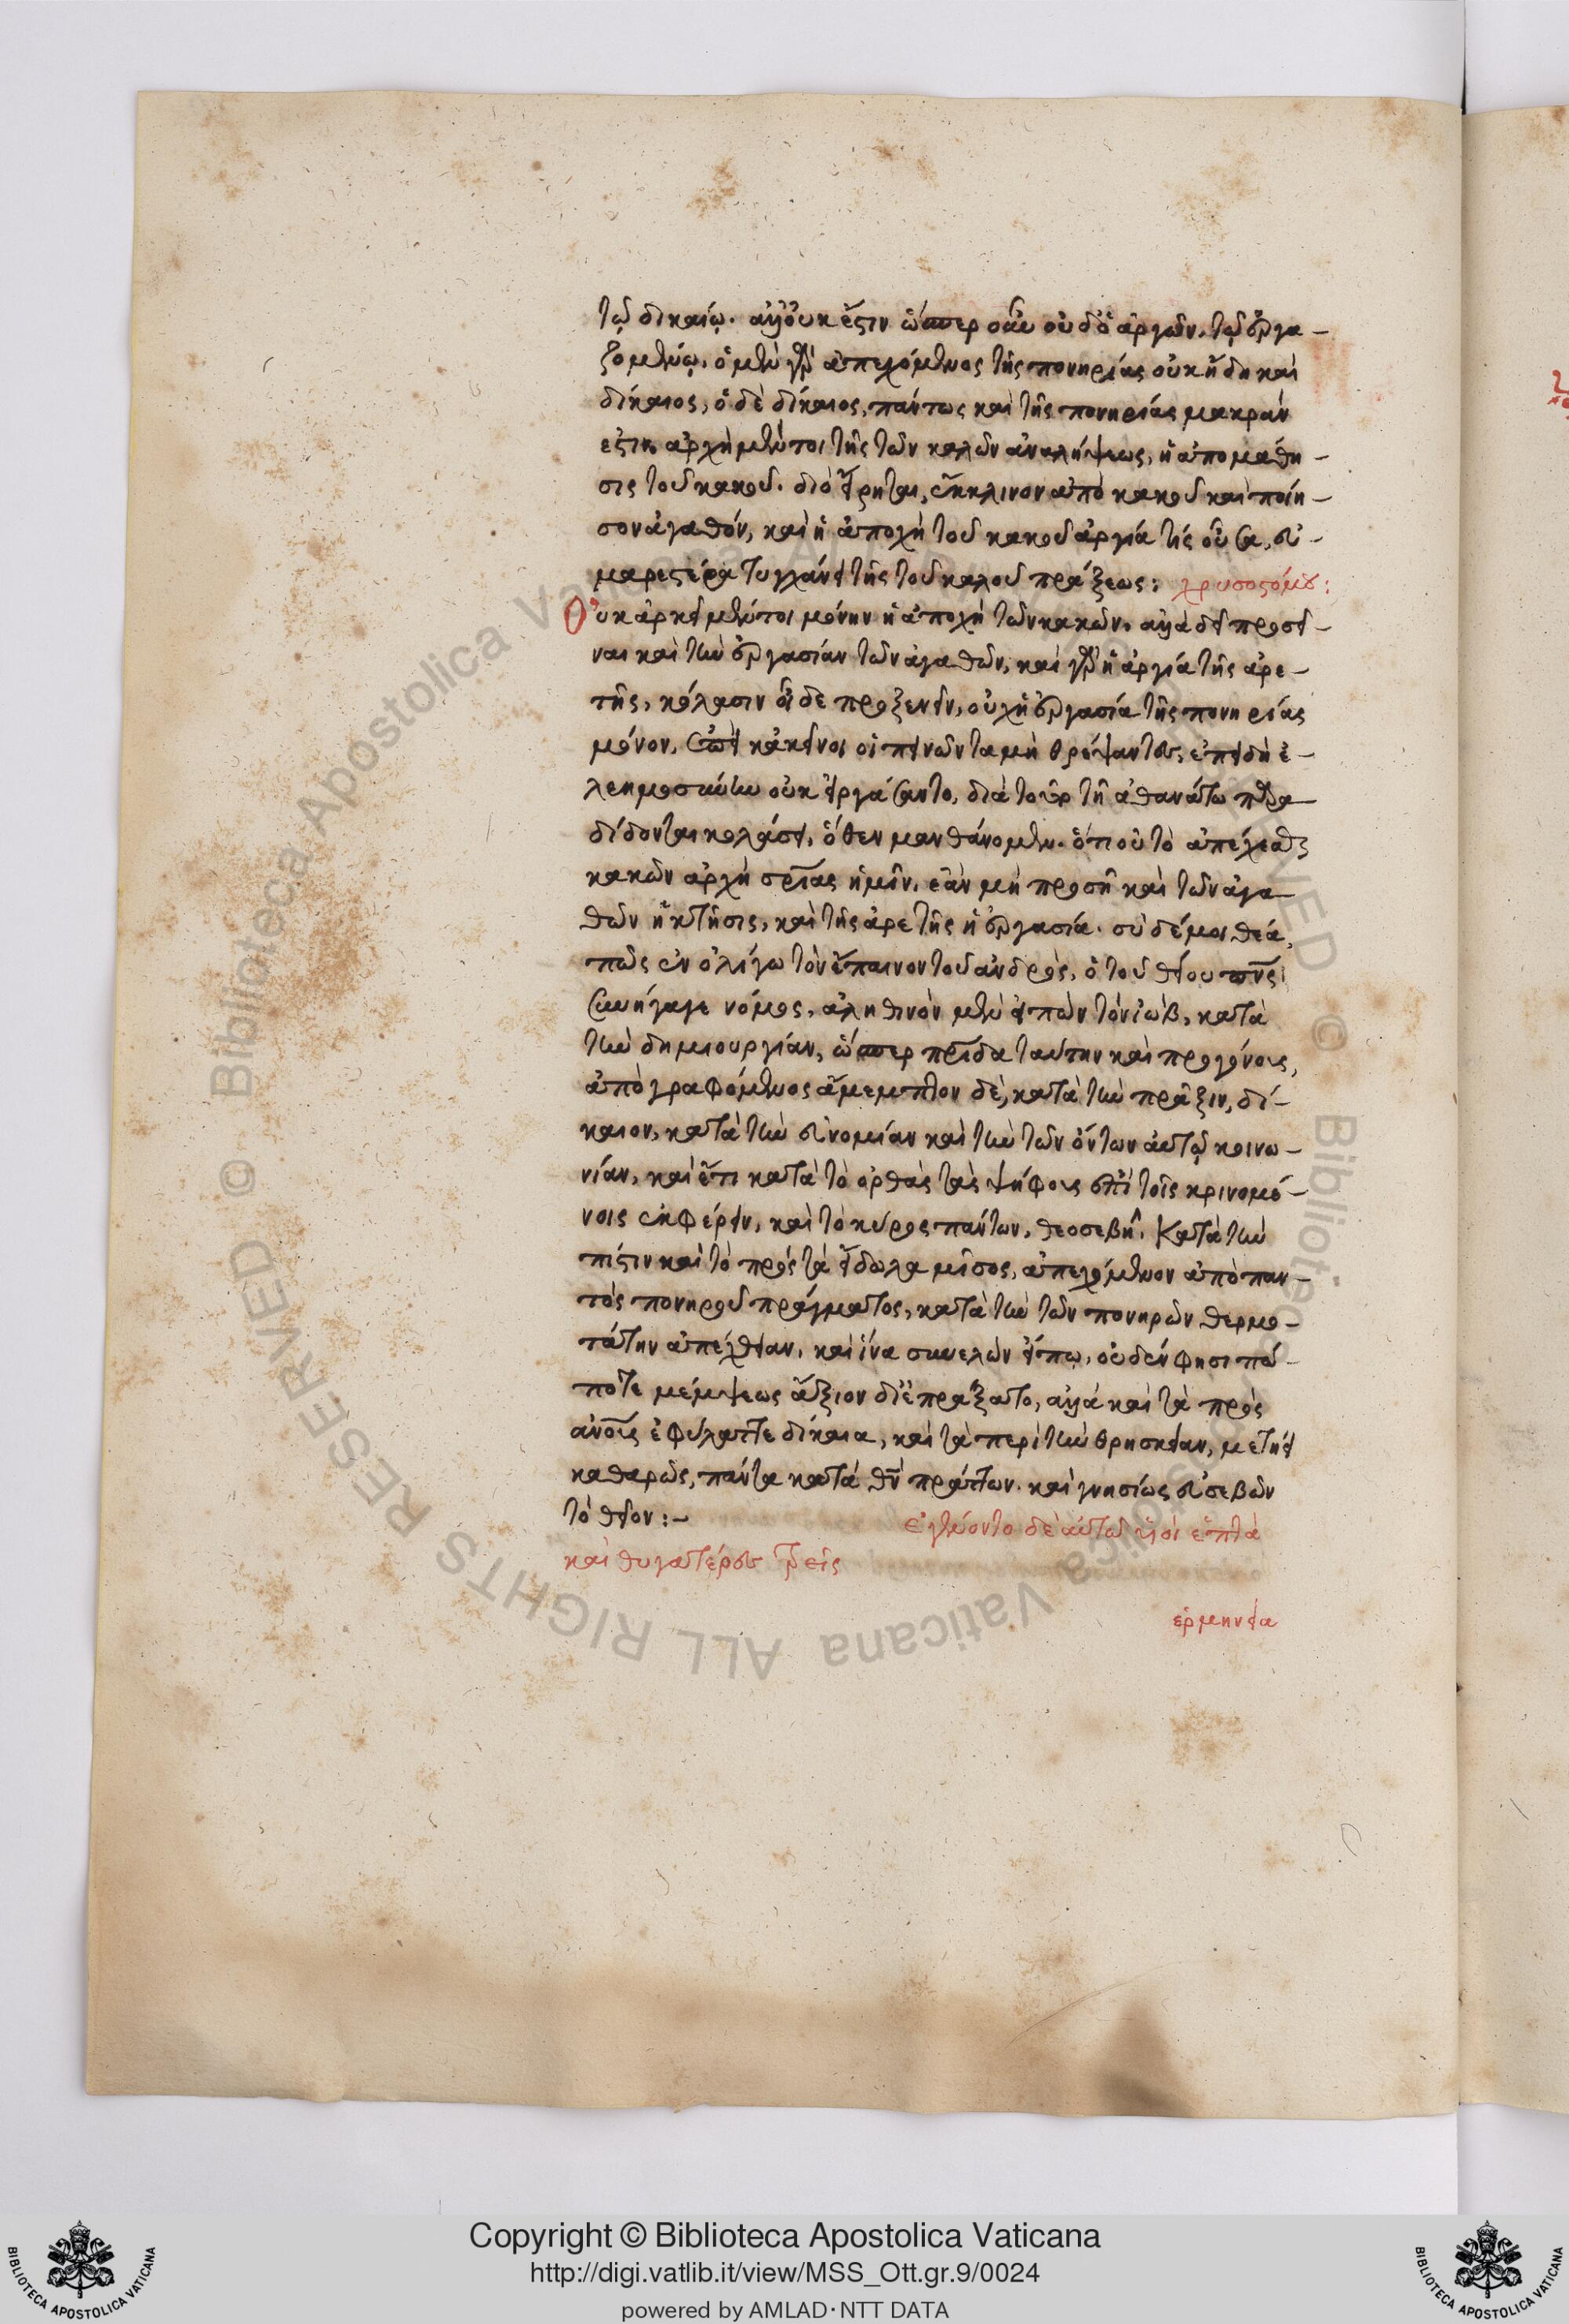 τῷ δικαίῳ. ἀλλ' οὐκ ἔστιν ὥσπερ οὖν οὐδ' ὁ ἀργῶν, τῷ ἐργα-
ζομένῳ. ὁ μὲν γὰρ ἀπεχόμενος τῆς πονηρίας οὐκ ἤδη καὶ
δίκαιος, ὁ δὲ δίκαιος, πάντως καὶ τῆς πονηρίας μακράν
ἐστιν. ἀρχὴ μέντοι τῆς τῶν καλῶν ἀναλήψεως, ἡ ἀπομάθη-
σις τοῦ κακοῦ. διὸ εἴρηται, ἔκκλινον ἀπὸ κακοῦ καὶ ποίη-
σον ἀγαθόν, καὶ ἡ ἀποχὴ τοῦ κακοῦ ἀργία τίς οὖσα, εὐ-
μαρεστέρα τυγχάνει τῆς τοῦ καλοῦ πράξεως: χρυσοστόμου:
Οὐκ ἀρκεῖ μέντοι μόνην ἡ ἀποχὴ τῶν κακῶν. ἀλλὰ δεῖ προσεῖ-
ναι καὶ τὴν ἐργασίαν τῶν ἀγαθῶν, καὶ γὰρ ἡ ἀργία τῆς ἀρε-
τῆς, κόλασιν οἶδε προξενεῖν, οὐχ ἡ ἐργασία τῆς πονηρίας
μόνον, κἀκεῖνοι οἱ πεινῶντα μὴ θρέψαντες, ἐπειδὴ ἐ-
λεημοσύνην οὐκ εἰργάσαντο, διὰ τοῦτο τῇ ἀθανάτω παρα
δίδονται κολάσει, ὅθεν μανθάνομεν. ὅτι οὐ τὸ ἀπέχεσθαι
κακῶν ἀρχὴ σριας ἡμῖν, ἐὰν μὴ προσῇ καὶ τῶν ἀγα
θῶν ἡ κτῆσις, καὶ τῆς ἀρετῆς ἡ ἐργασία. σὺ δέ μοι θέα,
πῶς ἐν ὀλίγω τὸν ἔπαινον τοῦ ἀνδρὸς, ὁ τοῦ θείου πνς
συνήγαγε νόμος, ἀληθινὸν μὲν εἰπὼν τὸν ἰὼβ, κατὰ
τὴν δημιουργίαν, ὥσπερ πρίδα ταύτην καὶ προγόνοις,
ἀπογραφόμενος ἄμεμπτον δὲ, κατὰ τὴν πρᾶξιν, δί-
καιον, κατὰ τὴν εὐνομίαν καὶ τὴν τῶν ὄντων αὐτῷ κοινω-
νίαν, καὶ ἔτι κατὰ τὸ ὀρθὰς τὰς ψήφους ἐπὶ τοῖς κρινομέ-
νοις ἐκφέρειν, καὶ τὸ κύρος πάντων, θεοσεβῆ. κατὰ τὴν
πίστιν καὶ τὸ πρὸς τὰ εἴδωλα μῖσος, ἀπεχόμενον ἀπὸ παν-
τὸς πονηροῦ πράγματος, κατὰ τὴν τῶν πονηρῶν θερμο-
τάτην ἀπέχθειαν, καὶ ἵνα συνελὼν εἴπω, οὐδέν φησι πώ-
ποτε μέμψεως ἄξιον διεπράξατο, ἀλλὰ καὶ τὰ πρὸς
ἀνους ἐφύλαττε δίκαια, καὶ τὰ περὶ τὴν θρησκείαν, μετήει
καθαρῶς, πάντα κατὰ θν πράττων. καὶ γνησίως εὐσεβῶν
τὸ θεῖον:-
ἐγένοντο δὲ αὐτῶ υἱοὶ ἑπτὰ
καὶ θυγατέρες τρεῖς
ἑρμηνεία
Copyright © Biblioteca Apostolica Vaticana
http://digi.vatlib.it/view/MSS_Ott.gr.9/0024
powered by AMLAD·NTT DATA
BIBLIOTECA APOSTOLICA VATICANA
BIBLIOTECA APOSTOLICA VATICANA
© Biblioteca Apostolica Vaticana ALL RIGHTS RESERVED